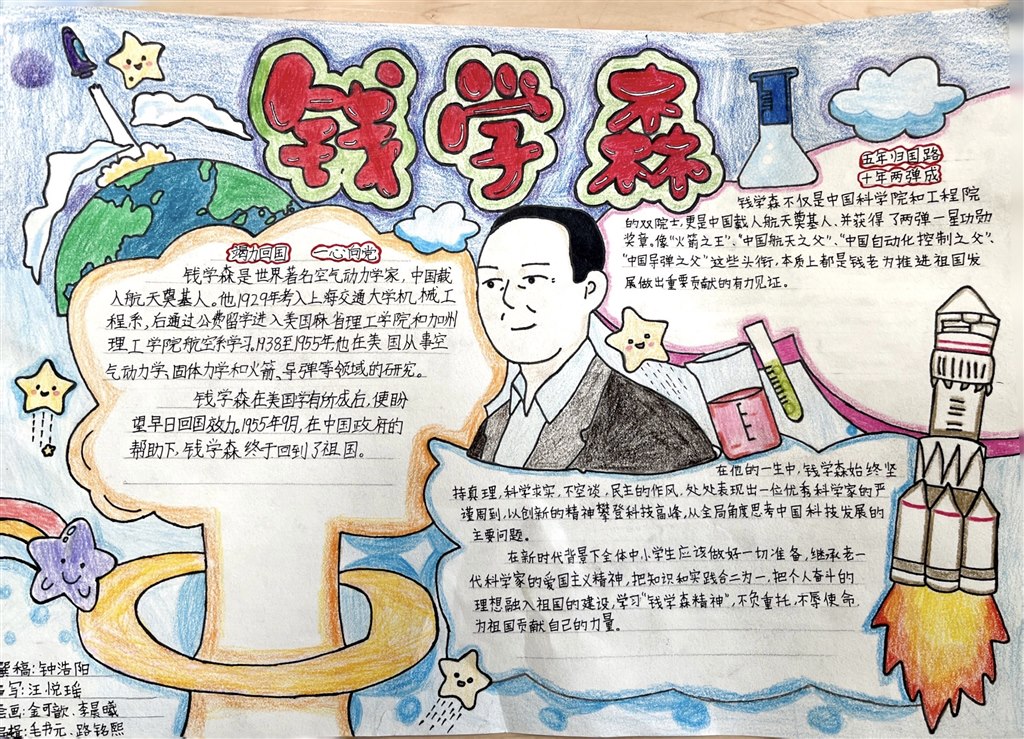 钱学森
竭力回国 一心向党
钱学森是世界著名空气动力学家，中国载
人航天奠基人。他1929年考入上海交通大学机械工
程系，后通过公费留学进入美国麻省理工学院和加州
理工学院航空系学习。1938至1955年他在美国从事空
气动力学、固体力学和火箭、导弹等领域的研究。
钱学森在美国学有所成后，便盼
望早日回国效力。1955年9月，在中国政府的
帮助下，钱学森终于回到了祖国。
五年归国路
十年两弹成
钱学森不仅是中国科学院和工程院
的双院士，更是中国载人航天奠基人、并获得了两弹一星功勋
奖章。像“火箭之王”、“中国航天之父”、“中国自动化控制之父”、
“中国导弹之父”这些头衔，本质上都是钱老为推进祖国发
展做出重要贡献的有力见证。
E
在他的一生中，钱学森始终坚
持真理，科学求实，不空谈，民主的作风，处处表现出一位优秀科学家的严
谨周到，以创新的精神攀登科技高峰，从全局角度思考中国科技发展的
主要问题。
在新时代背景下全体中小学生应该做好一切准备，继承老一
代科学家的爱国主义精神，把知识和实践合二为一，把个人奋斗的
理想融入祖国的建设，学习“钱学森精神”，不负重托，不辱使命，
为祖国贡献自己的力量。
撰稿：钟浩阳
写：汪悦瑶
绘画：金可歆、李晨曦
：毛书元、路铭熙